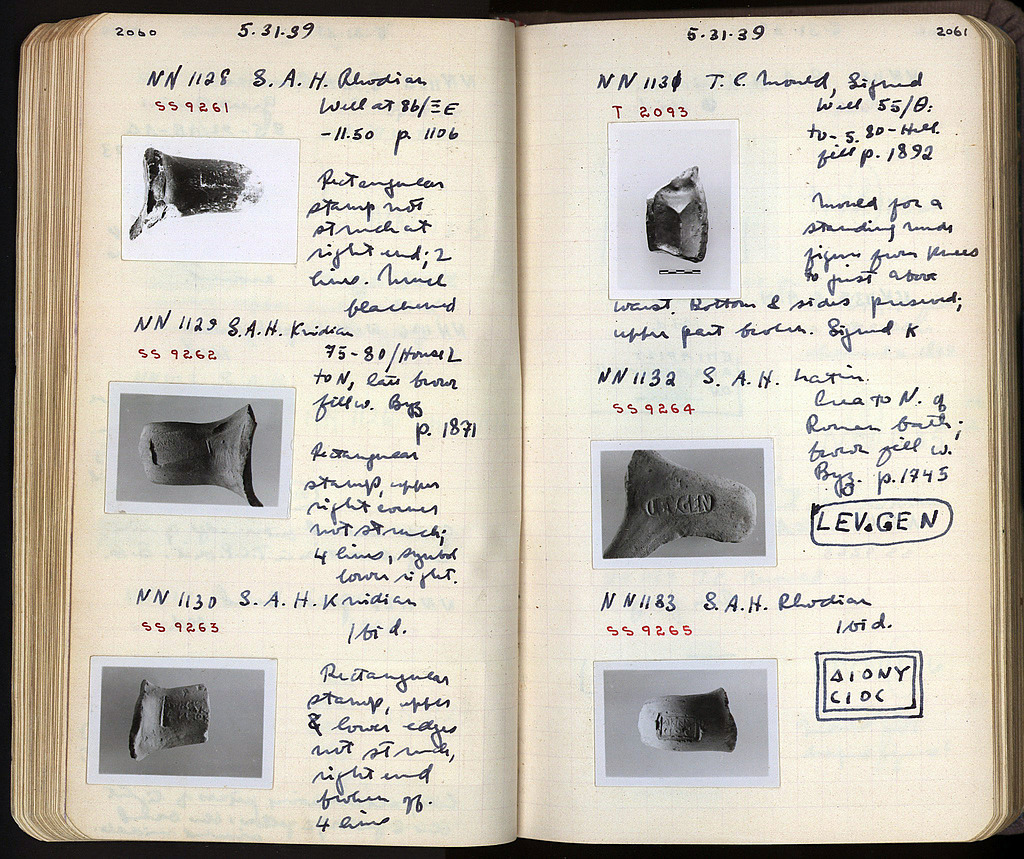 2060
5-31-39
NN 1128 S. A. H. Rhodian
SS 9261
Well at 86/ΞE
-11.50 p. 1106
Rectangular
stamp not
struck at
right end; 2
lines. Much
blackened
NN 1129 S.A.H. Knidian
SS 9262
75-80/House L
to N, late brown
fill w. Byz
p. 1871
Rectangular
stamp, upper
right corner
not struck;
4 lines, symbol
lower right.
NN 1130 S. A. H. Knidian
SS 9263
Ibid.
Rectangular
stamp, upper
& lower edges
not struck,
right end
broken off.
4 lines
5-31-39
2061
NN 1131 T. C. Mould, Signed
T 2093
Well 55/Θ:
to -5.80 - Hell.
fill p. 1892
Mould for a
standing nude
figure from knees
to just above
waist. Bottom & sides preserved;
upper part broken. Signed K
NN 1132 S. A. H. Latin.
SS 9264
Area to N. of
Roman bath;
brown fill w.
Byz. p. 1745
LEV.GEN
NN 1133 S.A.H. Rhodian
SS 9265
Ibid.
ΔIONY
CIOC